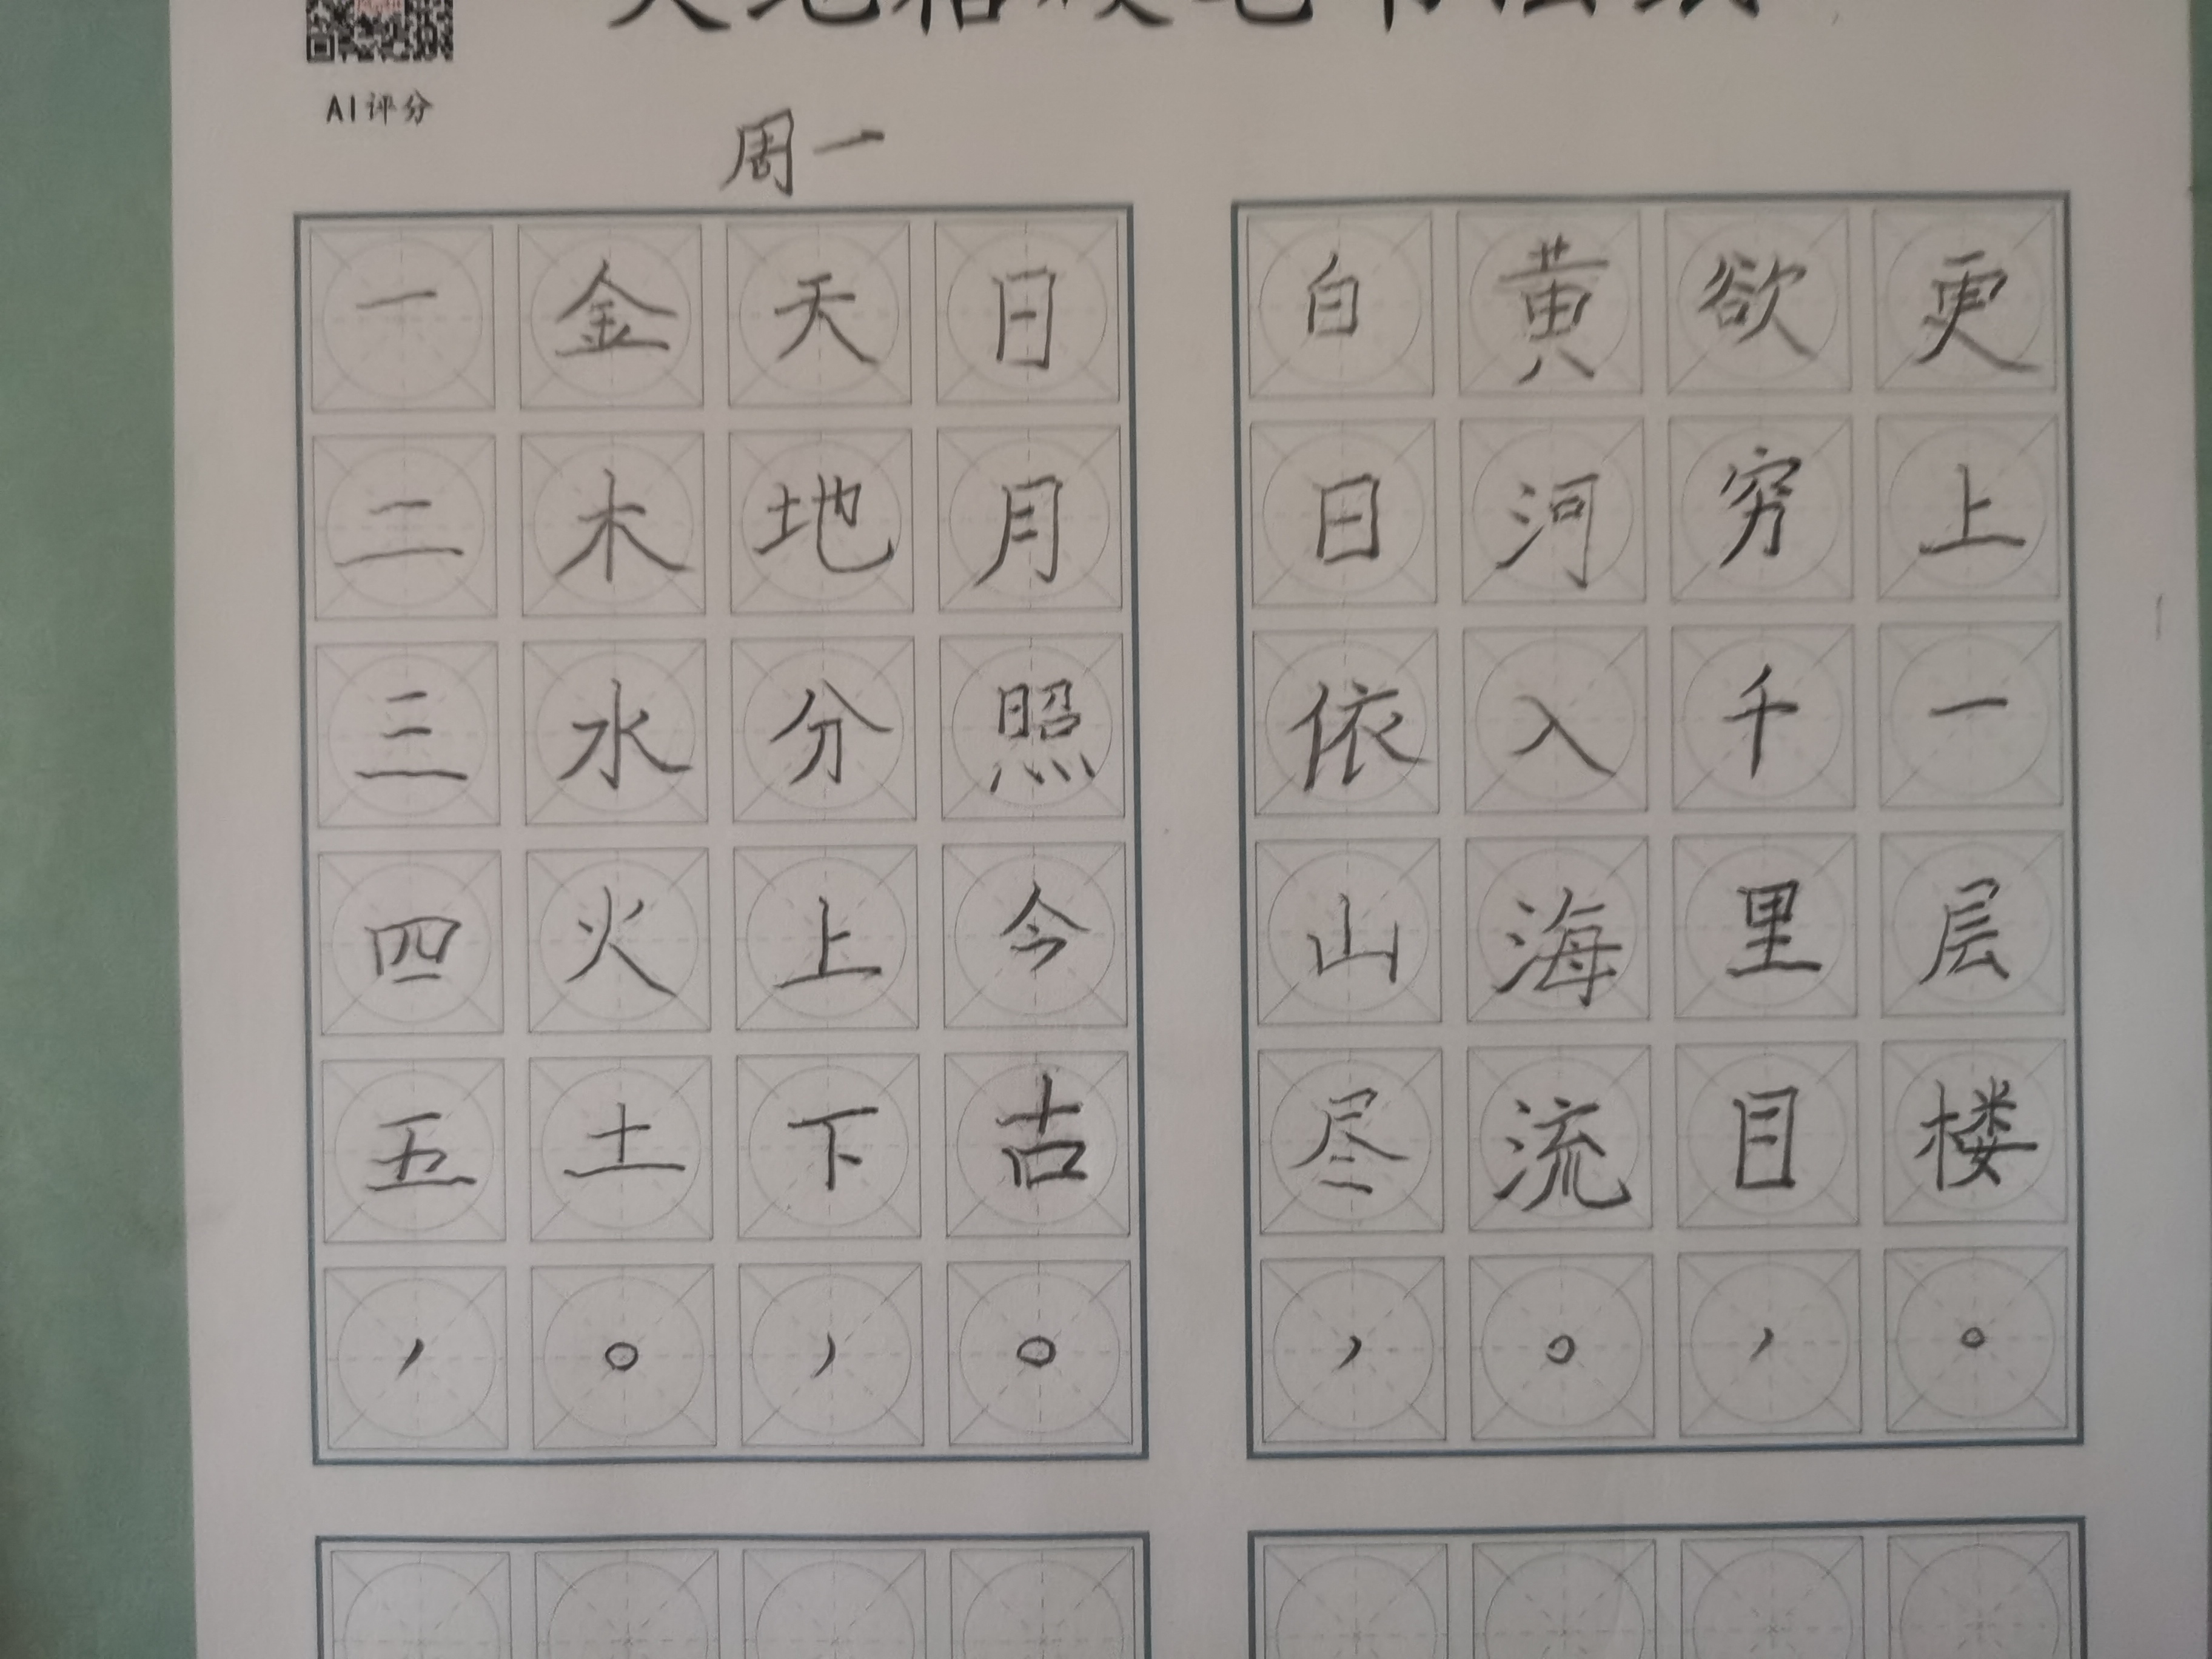 AI评分
周一
一二三四五，
金木水火土。
天地分上下，
日月照今古。
白日依山尽，
黄河入海流。
欲穷千里目，
更上一层楼。